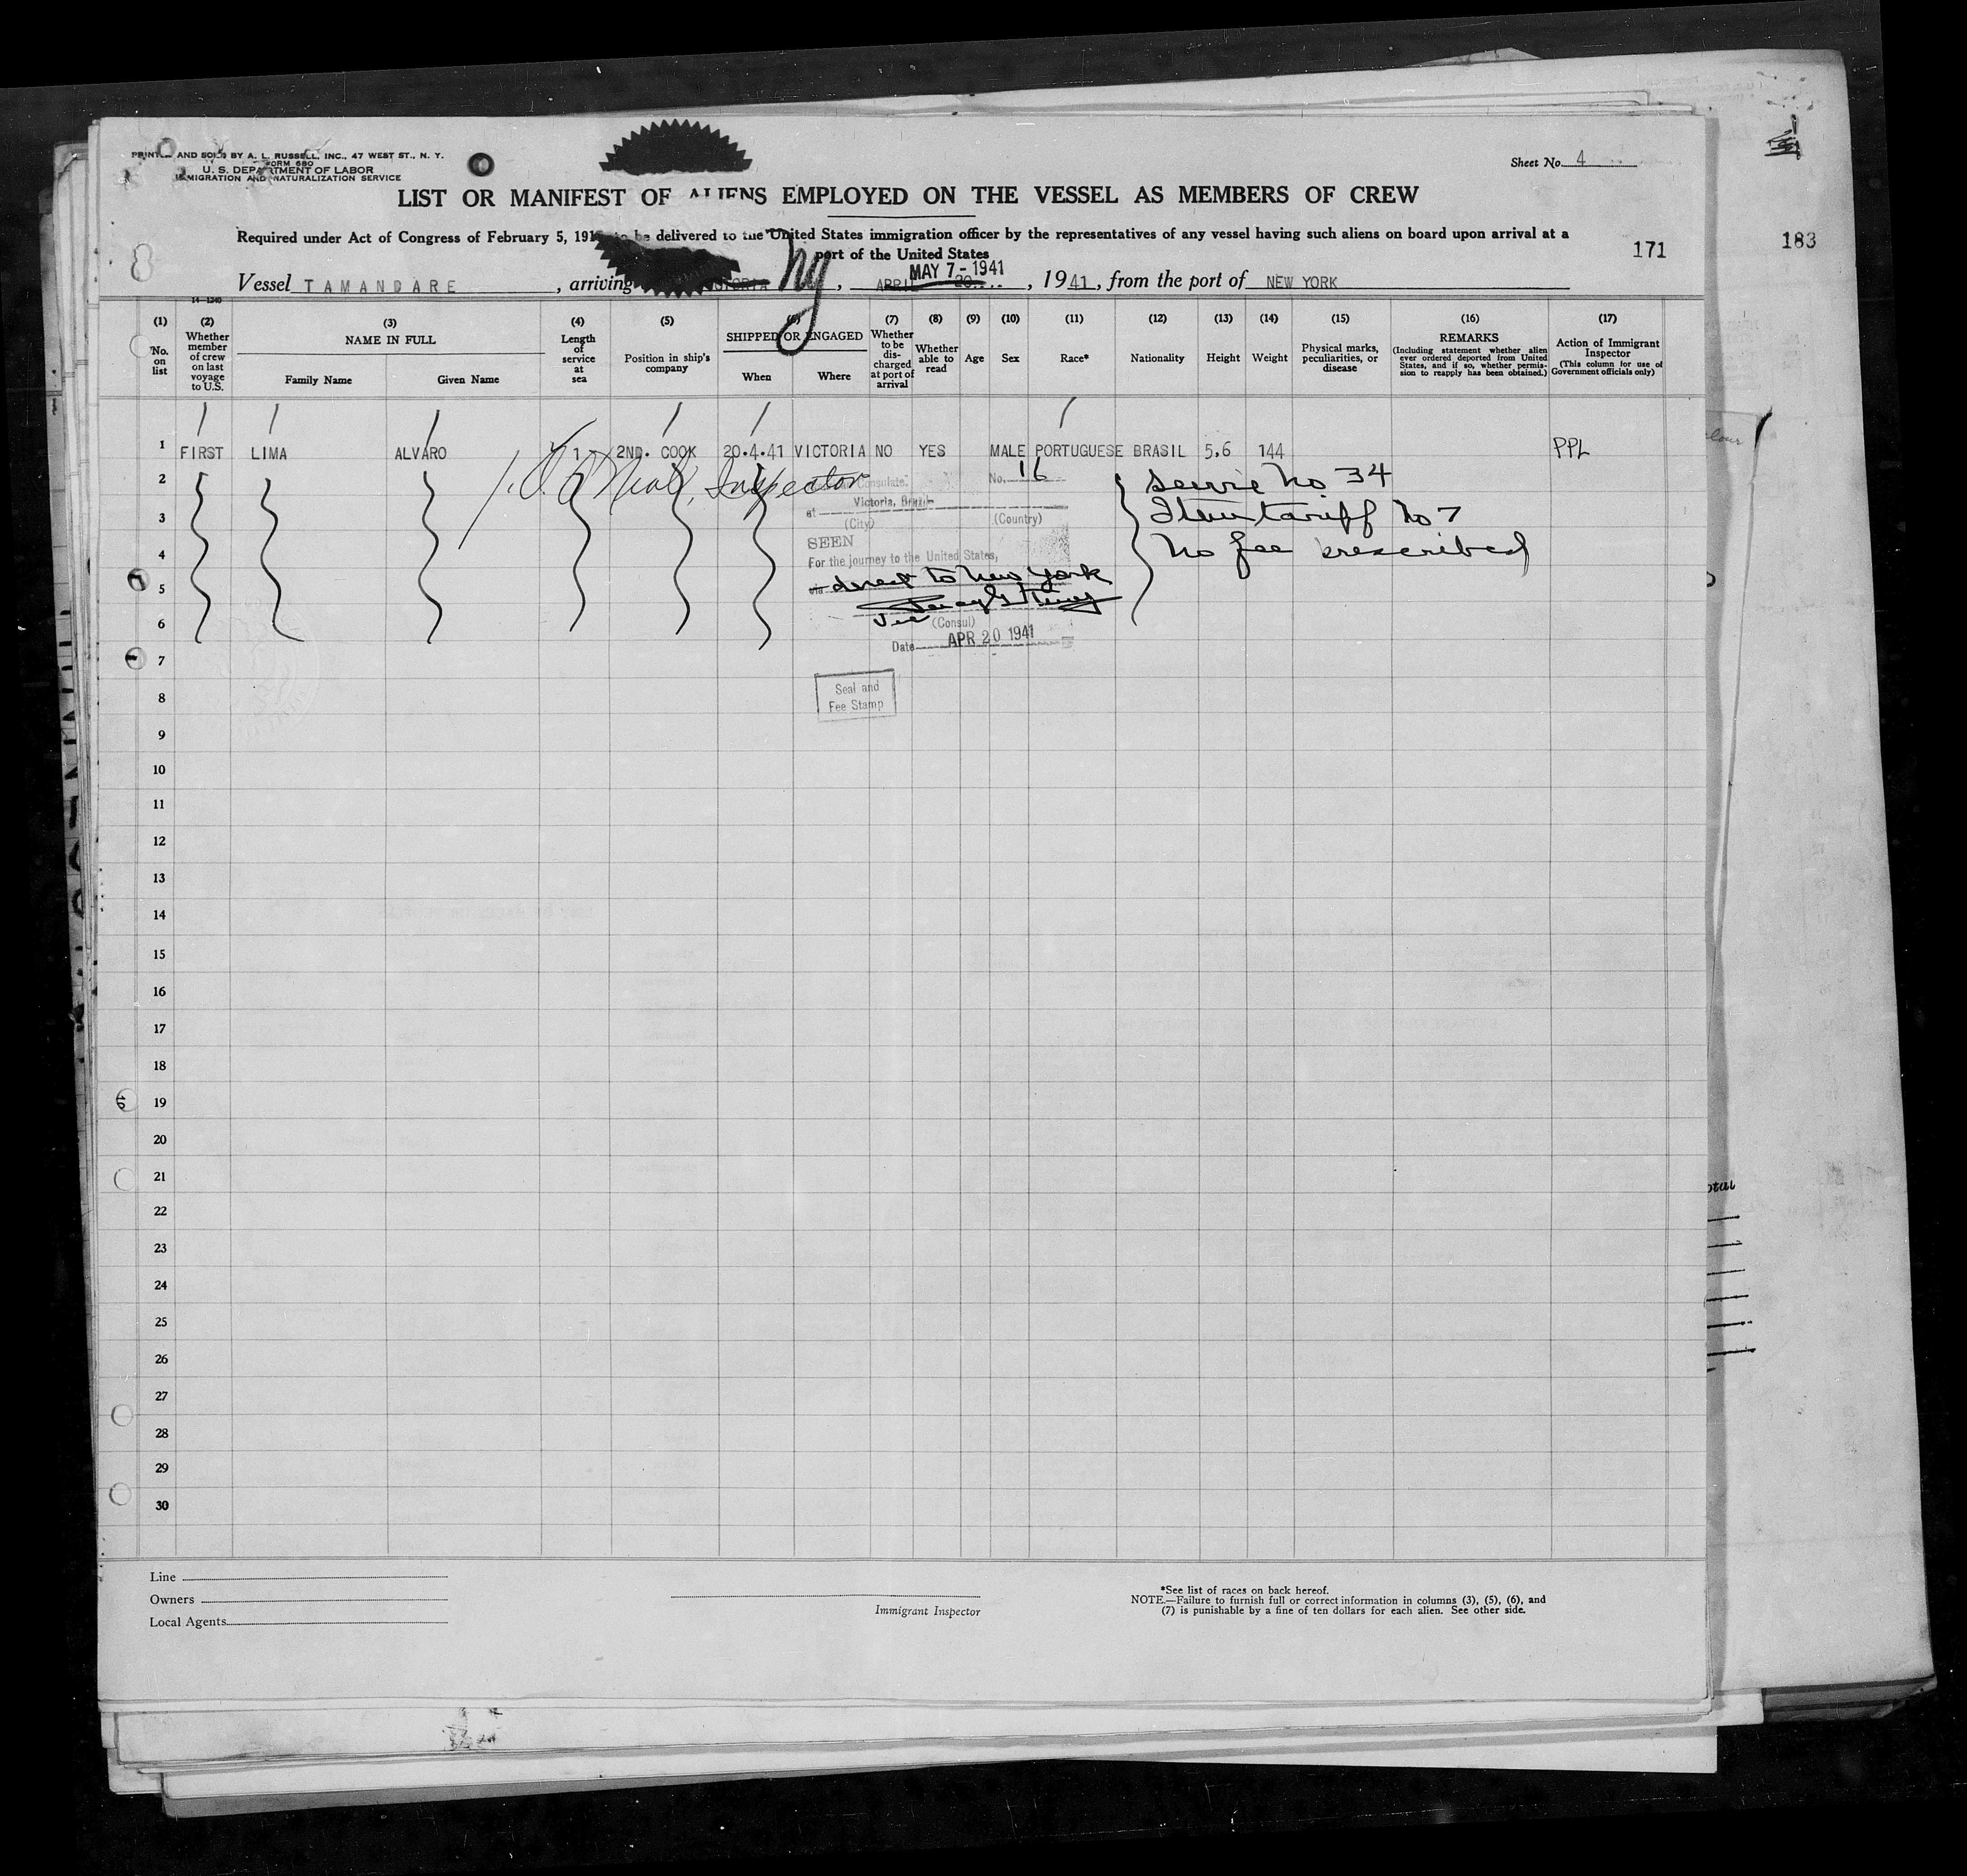 PRINTED AND SOLD BY A. L. RUSSELL, INC., 47 WEST ST., N. Y.
FORM 680
U. S. DEPARTMENT OF LABOR
IMMIGRATION AND NATURALIZATION SERVICE
Sheet No. 4
LIST OR MANIFEST OF ALIENS EMPLOYED ON THE VESSEL AS MEMBERS OF CREW
Required under Act of Congress of February 5, 191 to be delivered to the United States immigration officer by the representatives of any vessel having such aliens on board upon arrival at a
port of the United States
171
183
MAY 7 - 1941
Vessel TAMANDARE, arriving Ny, APRIL 20, 1941, from the port of NEW YORK
14-1240
(1) No. on list
(2) Whether member of crew on last voyage to U.S.
(3) NAME IN FULL
Family Name Given Name
(4) Length of service at sea
(5) Position in ship's company
(6) SHIPPED OR ENGAGED
When Where
(7) Whether to be discharged at port of arrival
(8) Whether able to read
(9) Age
(10) Sex
(11) Race*
(12) Nationality
(13) Height
(14) Weight
(15) Physical marks, peculiarities, or disease
(16) REMARKS (Including statement whether alien ever ordered deported from United States, and if so, whether permission to reapply has been obtained.)
(17) Action of Immigrant Inspector (This column for use of Government officials only)
1 FIRST LIMA ALVARO 1 2ND. COOK 20.4.41 VICTORIA NO YES MALE PORTUGUESE BRASIL 5.6 144 PPL
Inspector
Consulate
No. 16
at Victoria, Brazil
(City) (Country)
SEEN
For the journey to the United States,
via direct to New York
(Consul)
Date APR 20 1941
Seal and
Fee Stamp
Service No 34
Item tariff No 7
No fee prescribed
2
3
4
5
6
7
8
9
10
11
12
13
14
15
16
17
18
19
20
21
22
23
24
25
26
27
28
29
30
Line
Owners
Local Agents
Immigrant Inspector
*See list of races on back hereof.
NOTE.—Failure to furnish full or correct information in columns (3), (5), (6), and
(7) is punishable by a fine of ten dollars for each alien. See other side.